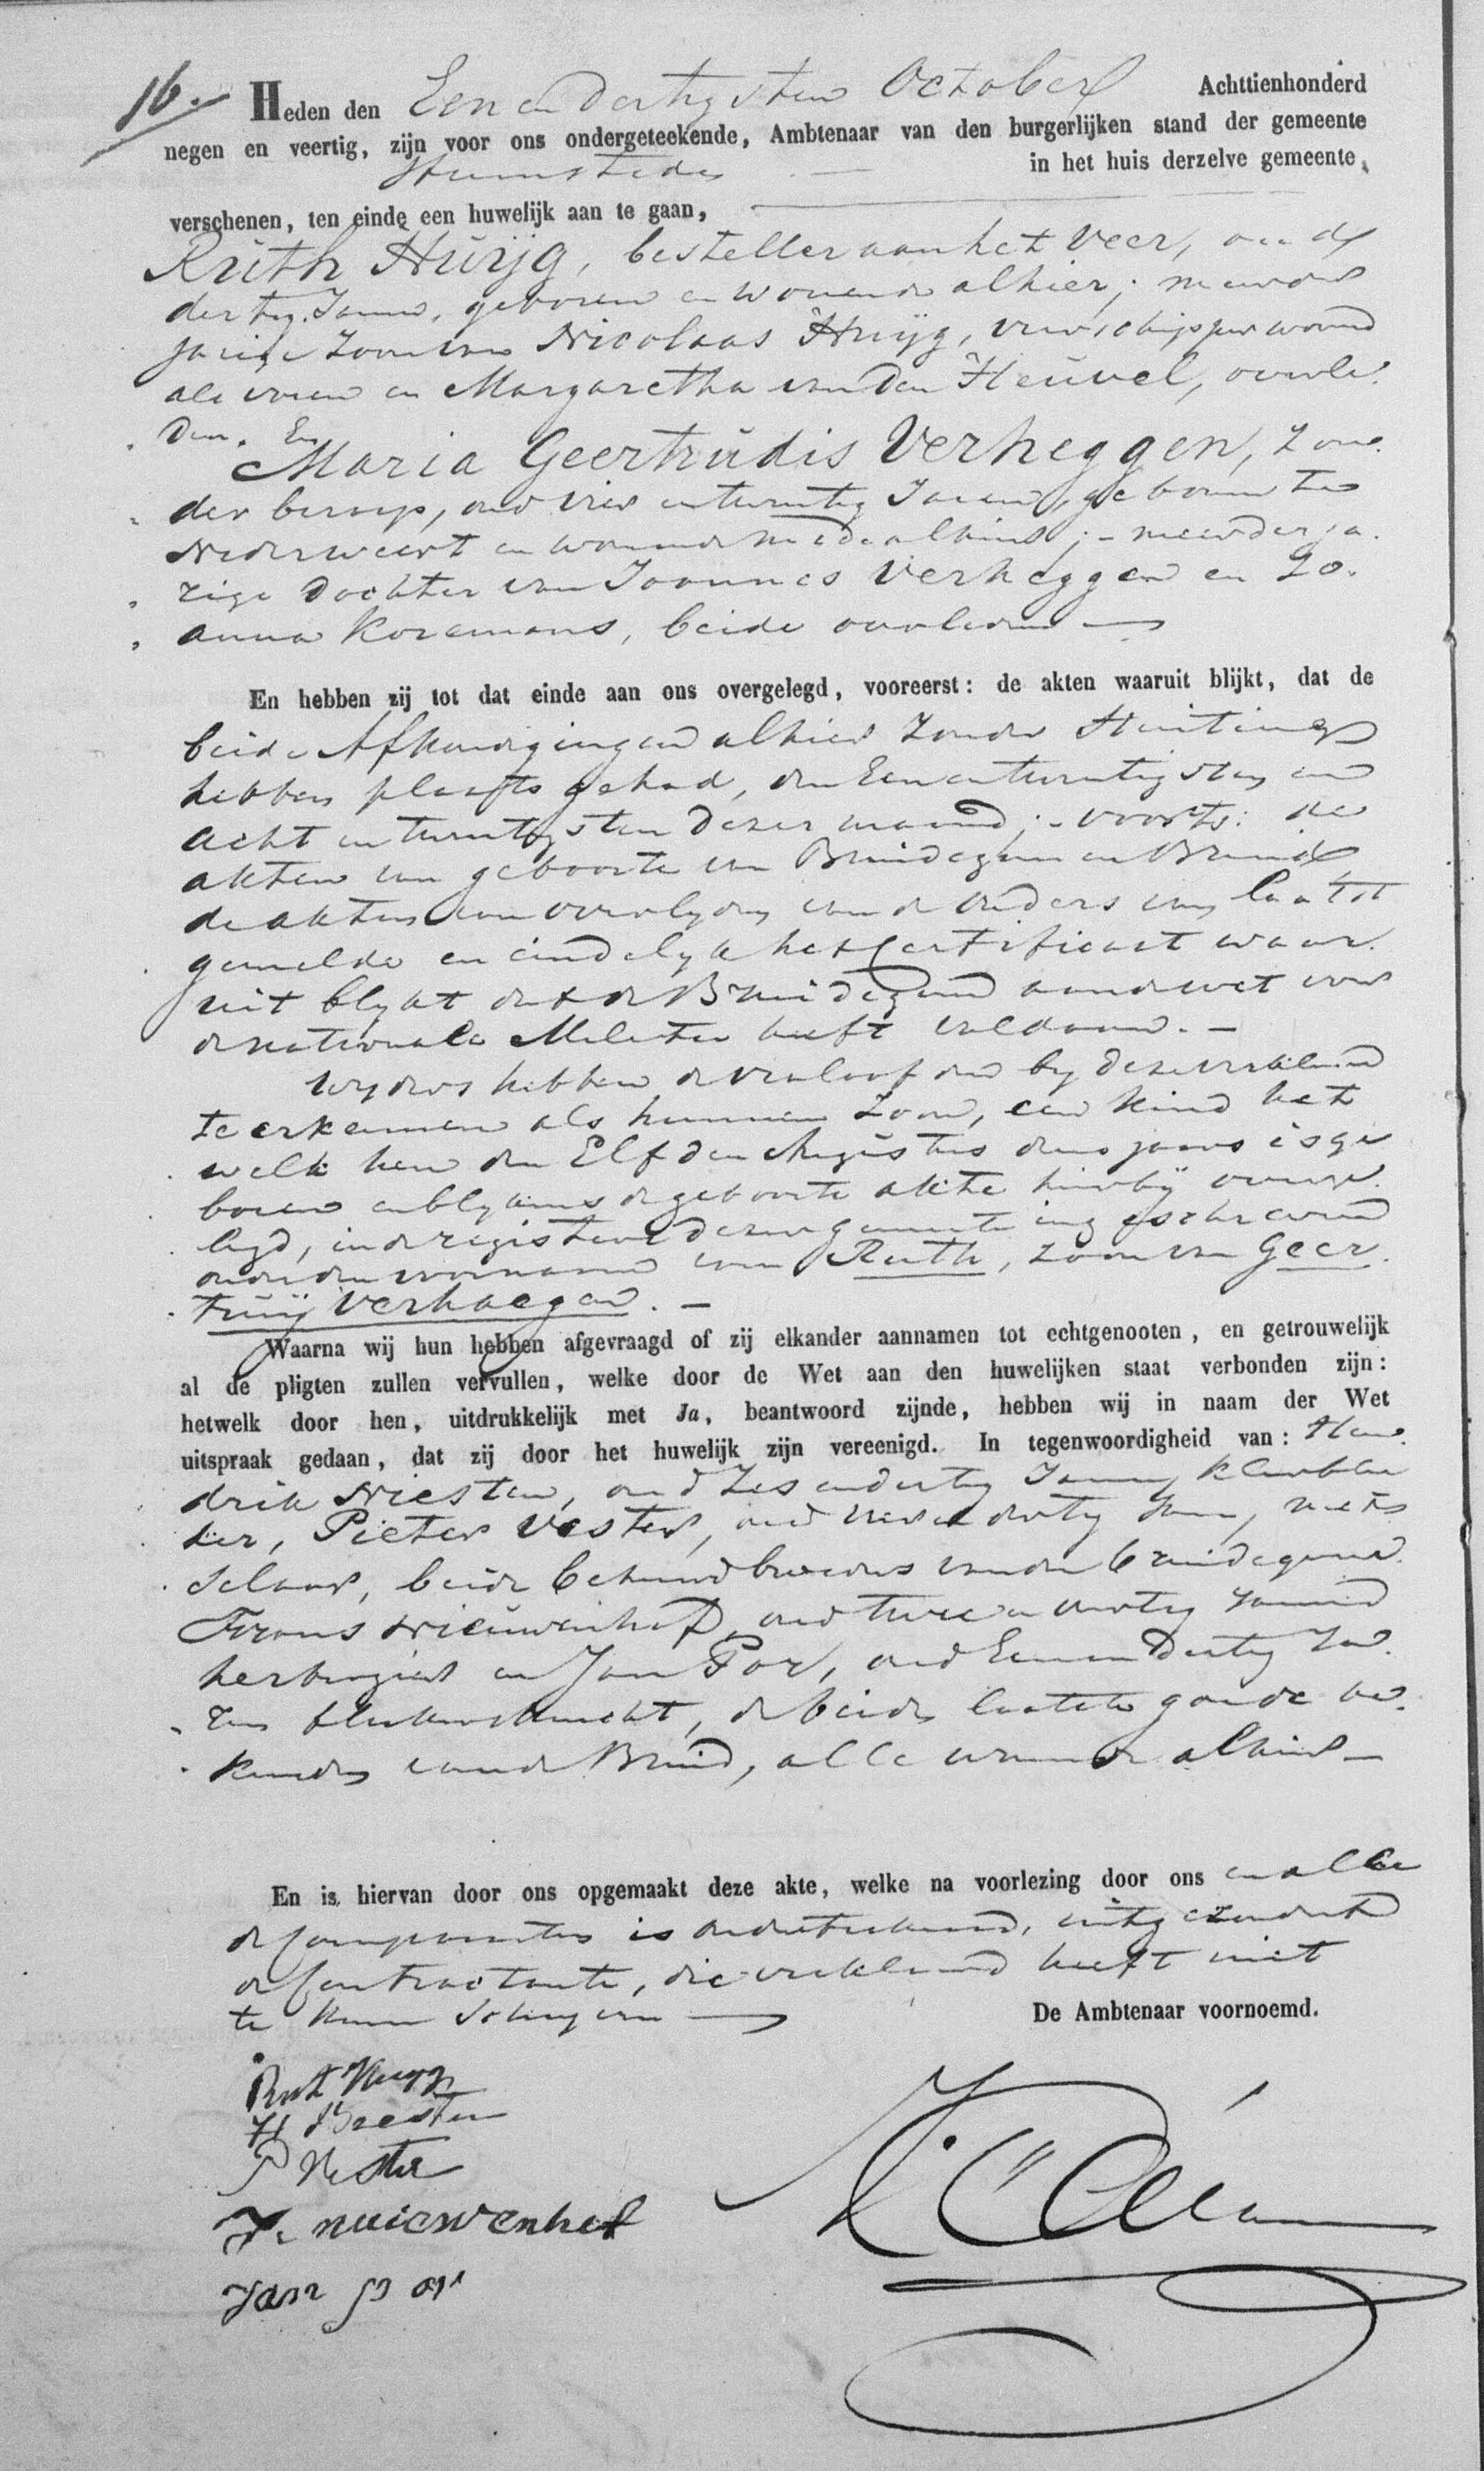 16.
Heden den Een en dertigsten October Achttienhonderd
negen en veertig, zijn voor ons ondergeteekende, Ambtenaar van den burgerlijken stand der gemeente
Heemstede in het huis derzelve gemeente,
verschenen, ten einde een huwelijk aan te gaan,
Ruth Huijg, besteller aan het veer, oud
dertig Jaren, geboren en wonende alhier; meerder
jarige Zoon van Nicolaas Huijg, veerschipper wonend
alvoren en Margaretha van den Heuvel, overle.
den. En
Maria Geertrudis Verheggen, zon.
der beroep, oud vier en twintig Jaren, geboren te
Nederweert en wonende mede alhier; - meerderja.
rige Dochter van Joannes Verheggen en Jo.
anna Koremans, beide overleden
En hebben zij tot dat einde aan ons overgelegd, vooreerst: de akten waaruit blijkt, dat de
beide Afkondigingen alhier zonder stuiting
hebben plaats gehad, den Een en twintigsten en
acht en twintigsten dezer maand; - voorts: de
akten van geboorte van Bruidegom en Bruid
de akten van overlyden van de ouders van laatst
gemelde en eindelyk het Certificaat waar.
uit blykt dat de Bruidegom aan de wet voor
de nationale Militie heeft voldaan. -
Wyders hebben de verloofden by deze verklaard
te erkennen als hunnen Zoon, een kind het
welk hen den Elfden Augustus dezes jaars is ge
boren en blykens de geboorte akte hierbij overge.
legd, in de registers dezer gemeente ingeschreven
onder den voornaam van Ruth, zoon van Geer.
truij Verhaegen. -
Waarna wij hun hebben afgevraagd of zij elkander aannamen tot echtgenooten, en getrouwelijk
al de pligten zullen vervullen, welke door de Wet aan den huwelijken staat verbonden zijn:
hetwelk door hen, uitdrukkelijk met Ja, beantwoord zijnde, hebben wij in naam der Wet
uitspraak gedaan, dat zij door het huwelijk zijn vereenigd. In tegenwoordigheid van: Hen.
drik Niesten, oud Zes en dertig Jaren,
Pieter Vester, oud vier en dertig Jaren, mets
selaar, beide behuwdbroeders van den bruidegom.
Frans Nieuwenhof, oud twee en veertig Jaren
herbergier en Jan Por, oud Een en Dertig Ja.
ren bleekersknecht, de beide laatste goede be.
kenden van de Bruid, alle wonende alhier -
En is hiervan door ons opgemaakt deze akte, welke na voorlezing door ons en alle
de Comparanten is onderteekend, uitgezonderd
de Contractante, die verklaard heeft niet
te kunnen schryven
De Ambtenaar voornoemd.
Rut Huijg
H Niesten
P Vester
F. nuiewenhof
Jan por